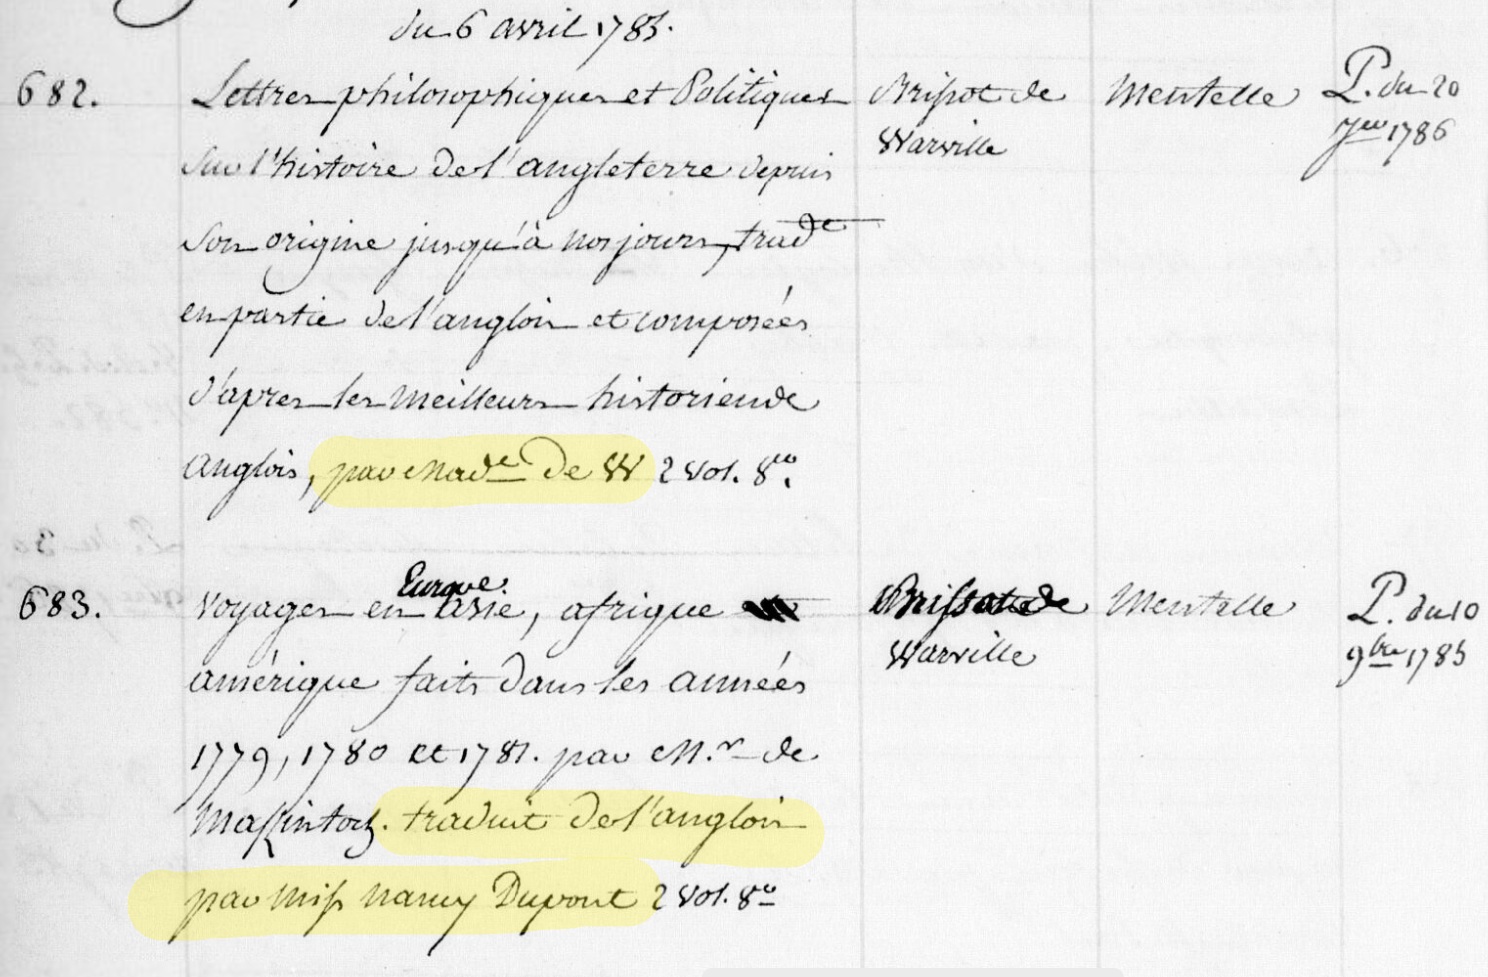 du 6 avril 1785.
682. Lettres philosophiques et Politiques Brissot de Mentelle P. du 20
Sur l'histoire de l'angleterre depuis Warville 7bre 1786
Son origine jusqu'à nos jours, trad.de
en partie de l'anglois et composées
d'apres les meilleurs historiens de
anglois, par Made de W 2 vol. 8vo.
683. Voyages en Europe asie, afrique Brissot de Mentelle P. du 10
amérique faits dans les années Warville 9bre 1785
1779, 1780 et 1781. par M.r de
Mackintosh. traduit de l'anglois
par Miss Nancy Dupont 2 vol. 8vo